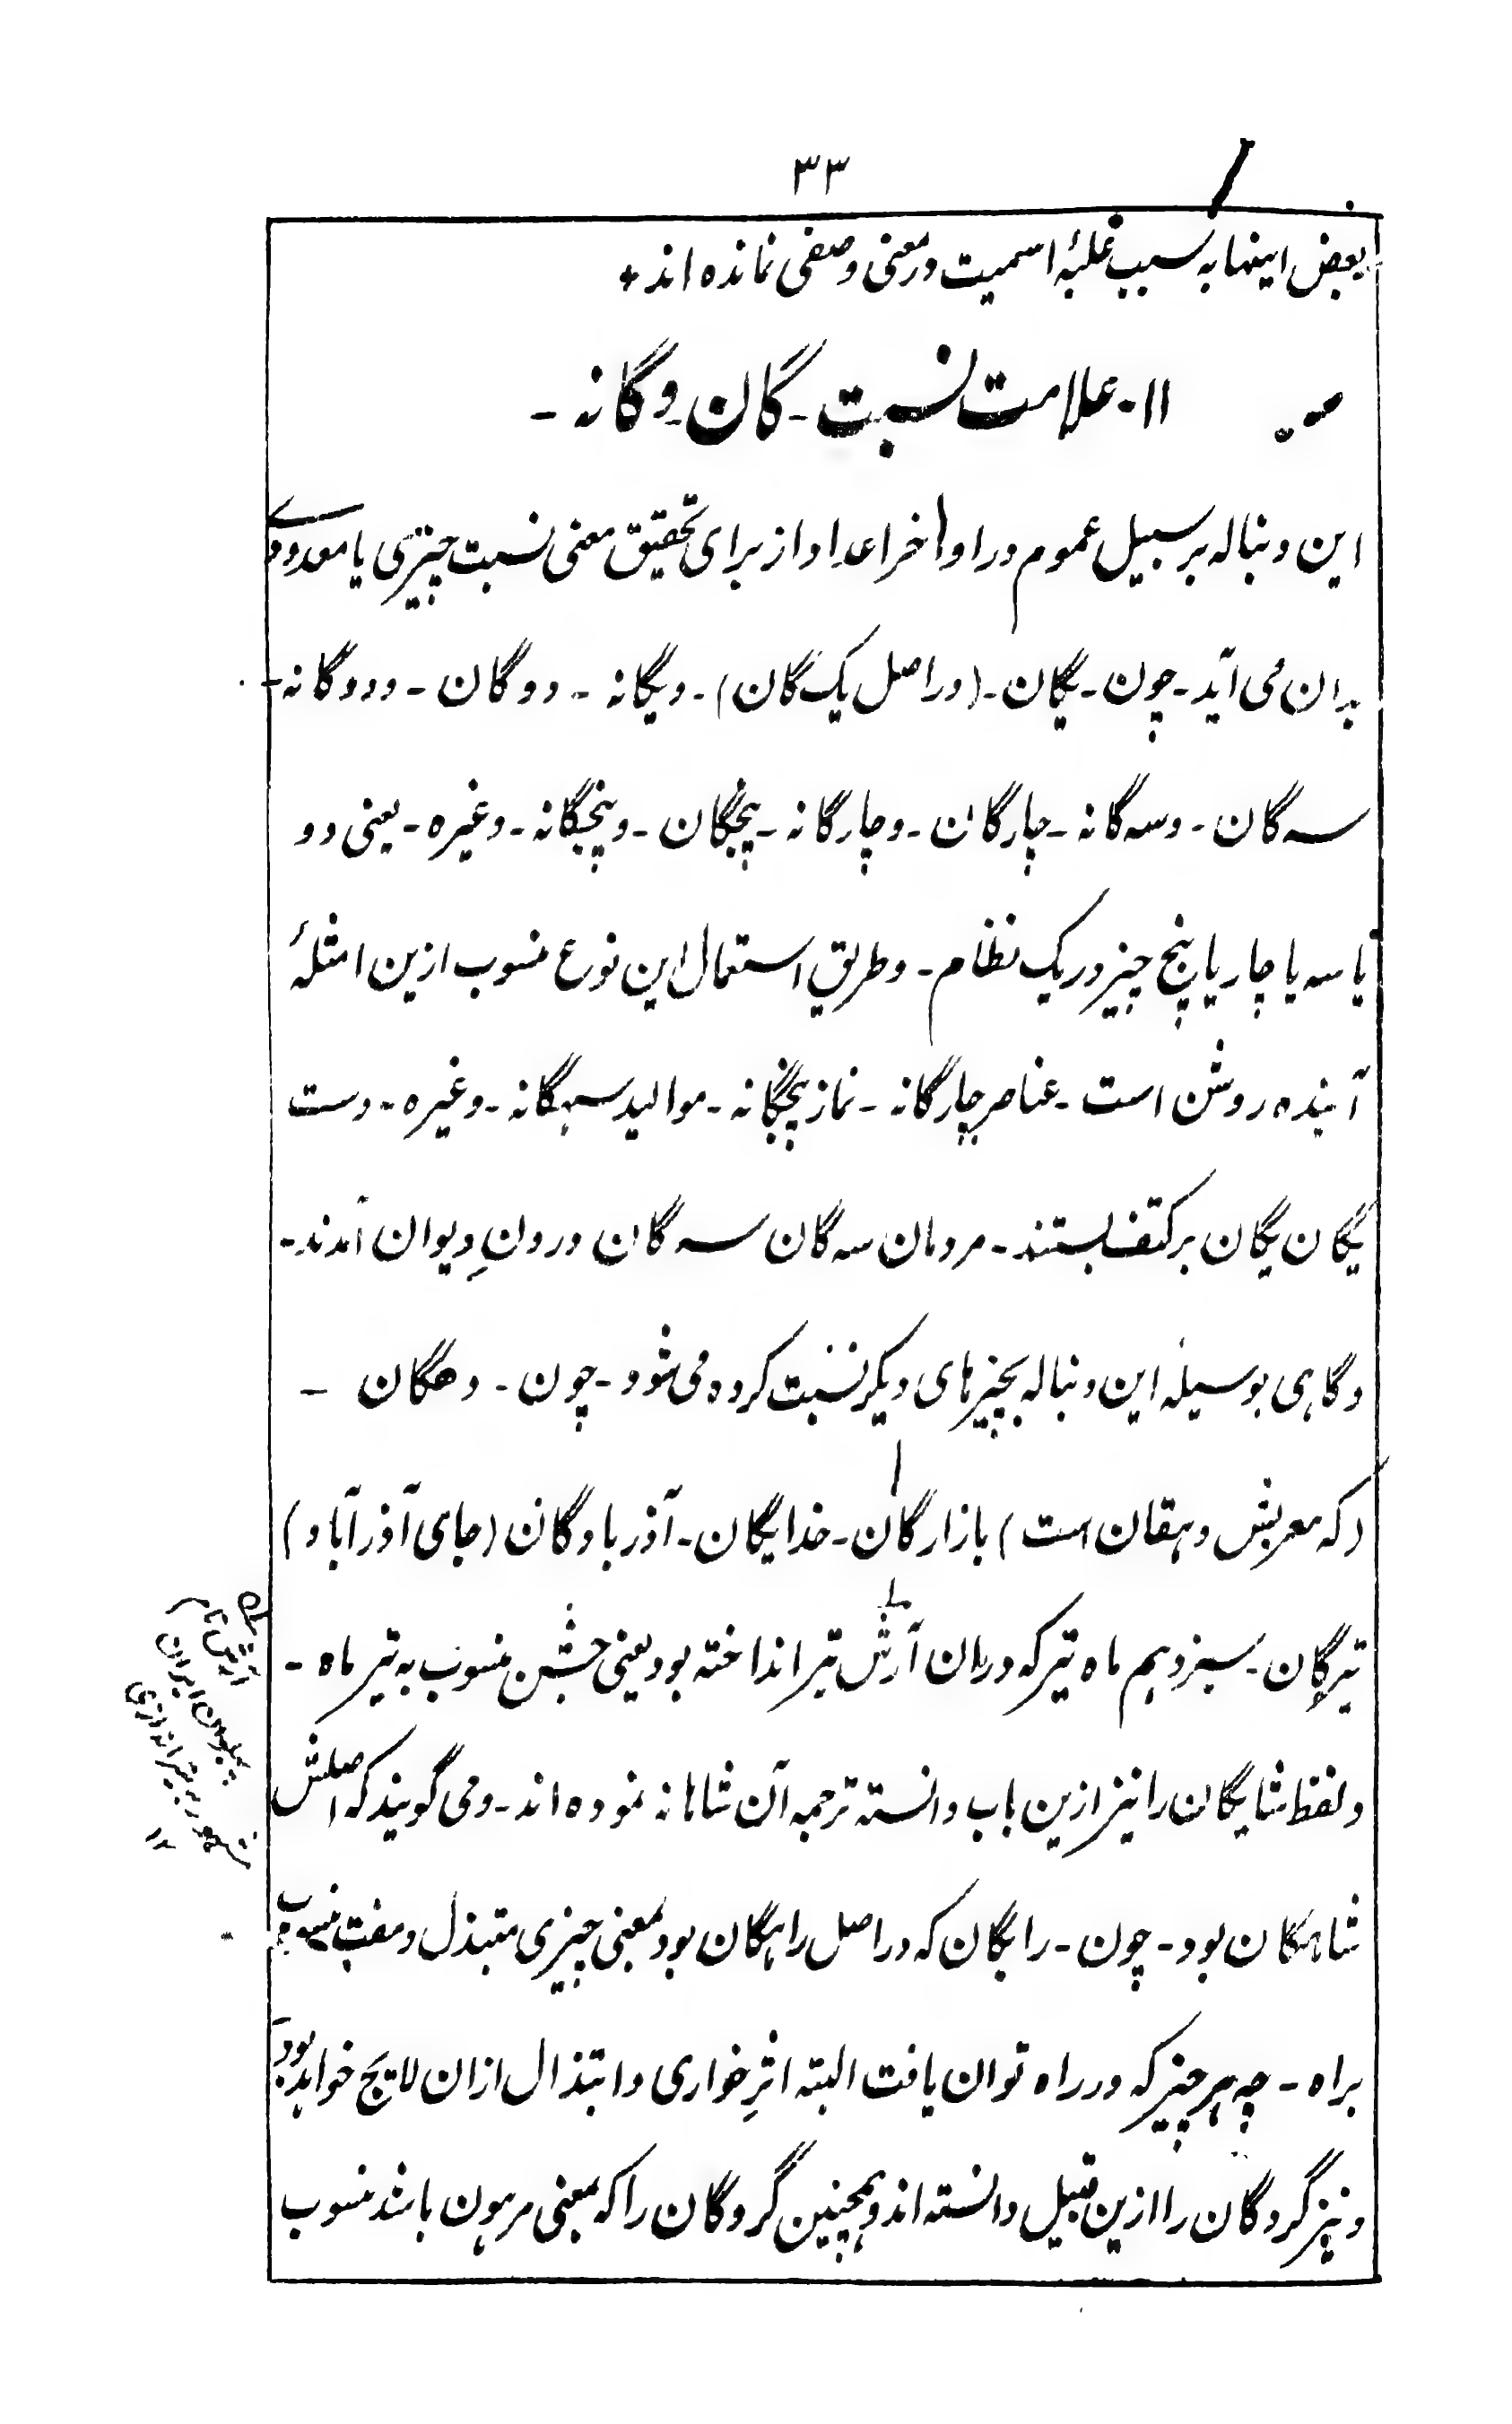 ۳۳
بعض اینها به سبب غلبهٔ اسمیت در معنی وصفی نمانده اند +
۱۱- علامت نسبت - گان - و گانه -
این دنباله بر سبیل عموم در اواخر اعداد از برای تحقیق معنی نسبت چیزی یا معدودے
بدان می آید - چون - یگان - (در اصل یک گان) - و یگانه - دو گان - و دو گانه -
سه گان - و سه گانه - چار گان - و چار گانه - پنجگان - و پنجگانه - و غیره - یعنی دو
یا سه یا چار یا پنج چیز در یک نظام - و طریق استعمال این نوع منسوب ازین امثلهٔ
آینده روشن است - عناصرِ چار گانه - نماز پنجگانه - موالید سه گانه - و غیره - دست
یگان یگان بر کتف بستند - مردمان سه گان سه گان درونِ دیوان آمدند -
و گاهی بوسیلهٔ این دنباله بچیزهای دیگر نسبت کرده می شود - چون - دهگان -
(که معربش دهقان است) بازارگان - خدایگان - آذربادگان (جای آذرآباد)
تیرگان - سیزدهم ماه تیر که دران آرش تیر انداخته بود یعنی جشن منسوب به تیر ماه -
و لفظ شایگان را نیز ازین باب دانسته ترجمه آن شاهانه نموده اند - و می گویند که اصلش
شاهگان بود - چون - رایگان که در اصل راهگان بود بمعنی چیزی مبتذل و مفت منسوب
براه - چه هر چیز که در راه توان یافت البته اثرِ خواری و ابتذال ازان لایح خواهد بود
و نیز گروگان را ازین قبیل دانسته اند و همچنین گروگان را که بمعنی مرهون باشد منسوب
آرش نام
پهلوان ایران
در تیر اندازی
۱۲